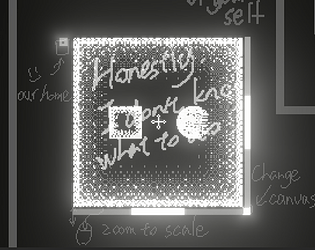 of your
self
our home
Honestly.
I don't know
what to do
Change
canvas
zoom to scale